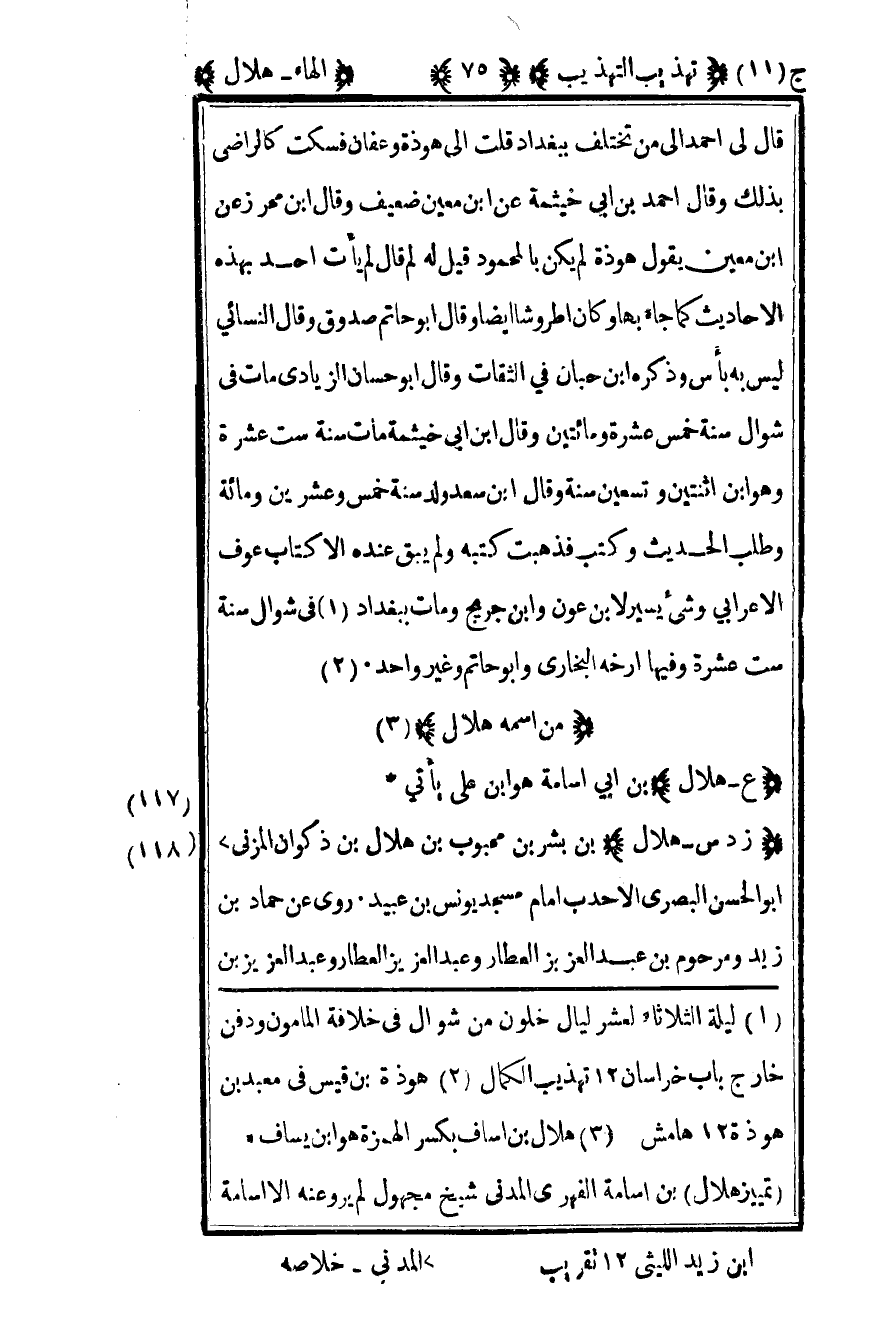 ج (١١) ﴿ تهذيب التهذيب ﴾ ﴿ ٧٥ ﴾ ﴿ الهاء ـ هلال ﴾
قال لى احمد الى من تختلف ببغداد قلت الى هوذة وعفان فسكت كالراضى
بذلك وقال احمد بن ابي خيثمة عن ابن معين ضعيف وقال ابن محرز عن
ابن معين يقول هوذة لم يكن بالمحمود قيل له لم قال لم يأت احد بهذه
الاحاديث كما جاء بها وكان اطروشا ايضا وقال ابوحاتم صدوق وقال النسائي
ليس به بأس وذكره ابن حبان في الثقات وقال ابوحسان الزيادى مات فى
شوال سنة خمس عشرة ومائتين وقال ابن ابي خيثمة مات سنة ست عشرة
وهو ابن اثنتين و تسعين سنة وقال ابن سعد ولد سنة خمس وعشرين ومائة
وطلب الحديث وكتب فذهبت كتبه ولم يبق عنده الا كتاب عوف
الاعرابي وشىء يسير لابن عون وابن جريج ومات ببغداد (١) فى شوال سنة
ست عشرة وفيها ارخه البخارى وابوحاتم وغير واحد ٠ (٢)
﴿ من اسمه هلال ﴾ (٣)
﴿ ع ـ هلال ﴾ بن ابي اسامة هو ابن على يأتي *
(١١٧)
﴿ ز د س ـ هلال ﴾ بن بشر بن محبوب بن هلال بن ذكوان المزنى>
(١١٨)
ابوالحسن البصرى الاحدب امام مسجد يونس بن عبيد ٠ روى عن حماد بن
زيد ومرحوم بن عبد العزيز العطار وعبد العزيز العطار وعبد العزيز بن
(١) ليلة الثلاثاء لعشر ليال خلون من شوال فى خلافة المامون ودفن
خارج باب خراسان ١٢ تهذيب الكمال (٢) هوذة بن قيس فى معبد بن
هوذة ١٢ هامش (٣) هلال بن اساف بكسر الهمزة هو ابن يساف *
(تمييز هلال) بن اسامة الفهرى المدنى شيخ مجهول لم يرو عنه الا اسامة
ابن زيد الليثى ١٢ تقريب >المدني ـ خلاصه